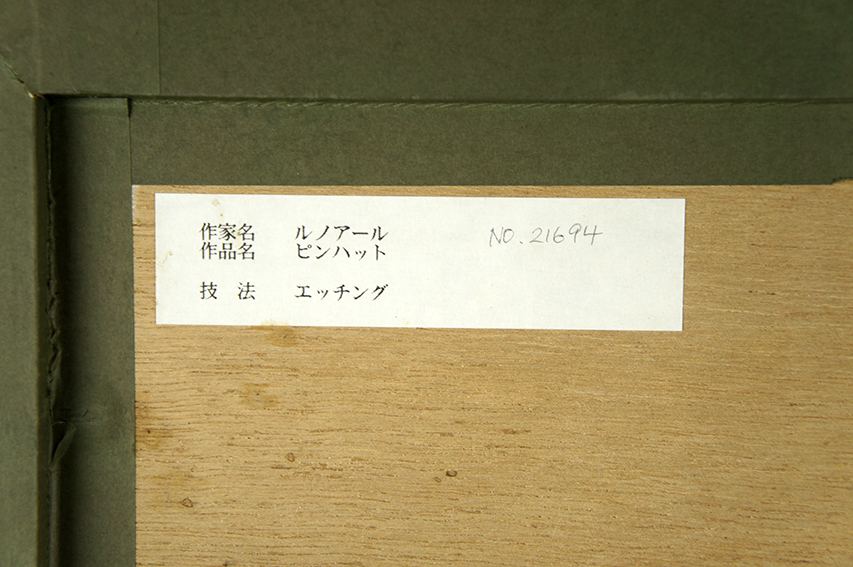 作家名 ルノアール NO. 21694
作品名 ピンハット
技 法 エッチング